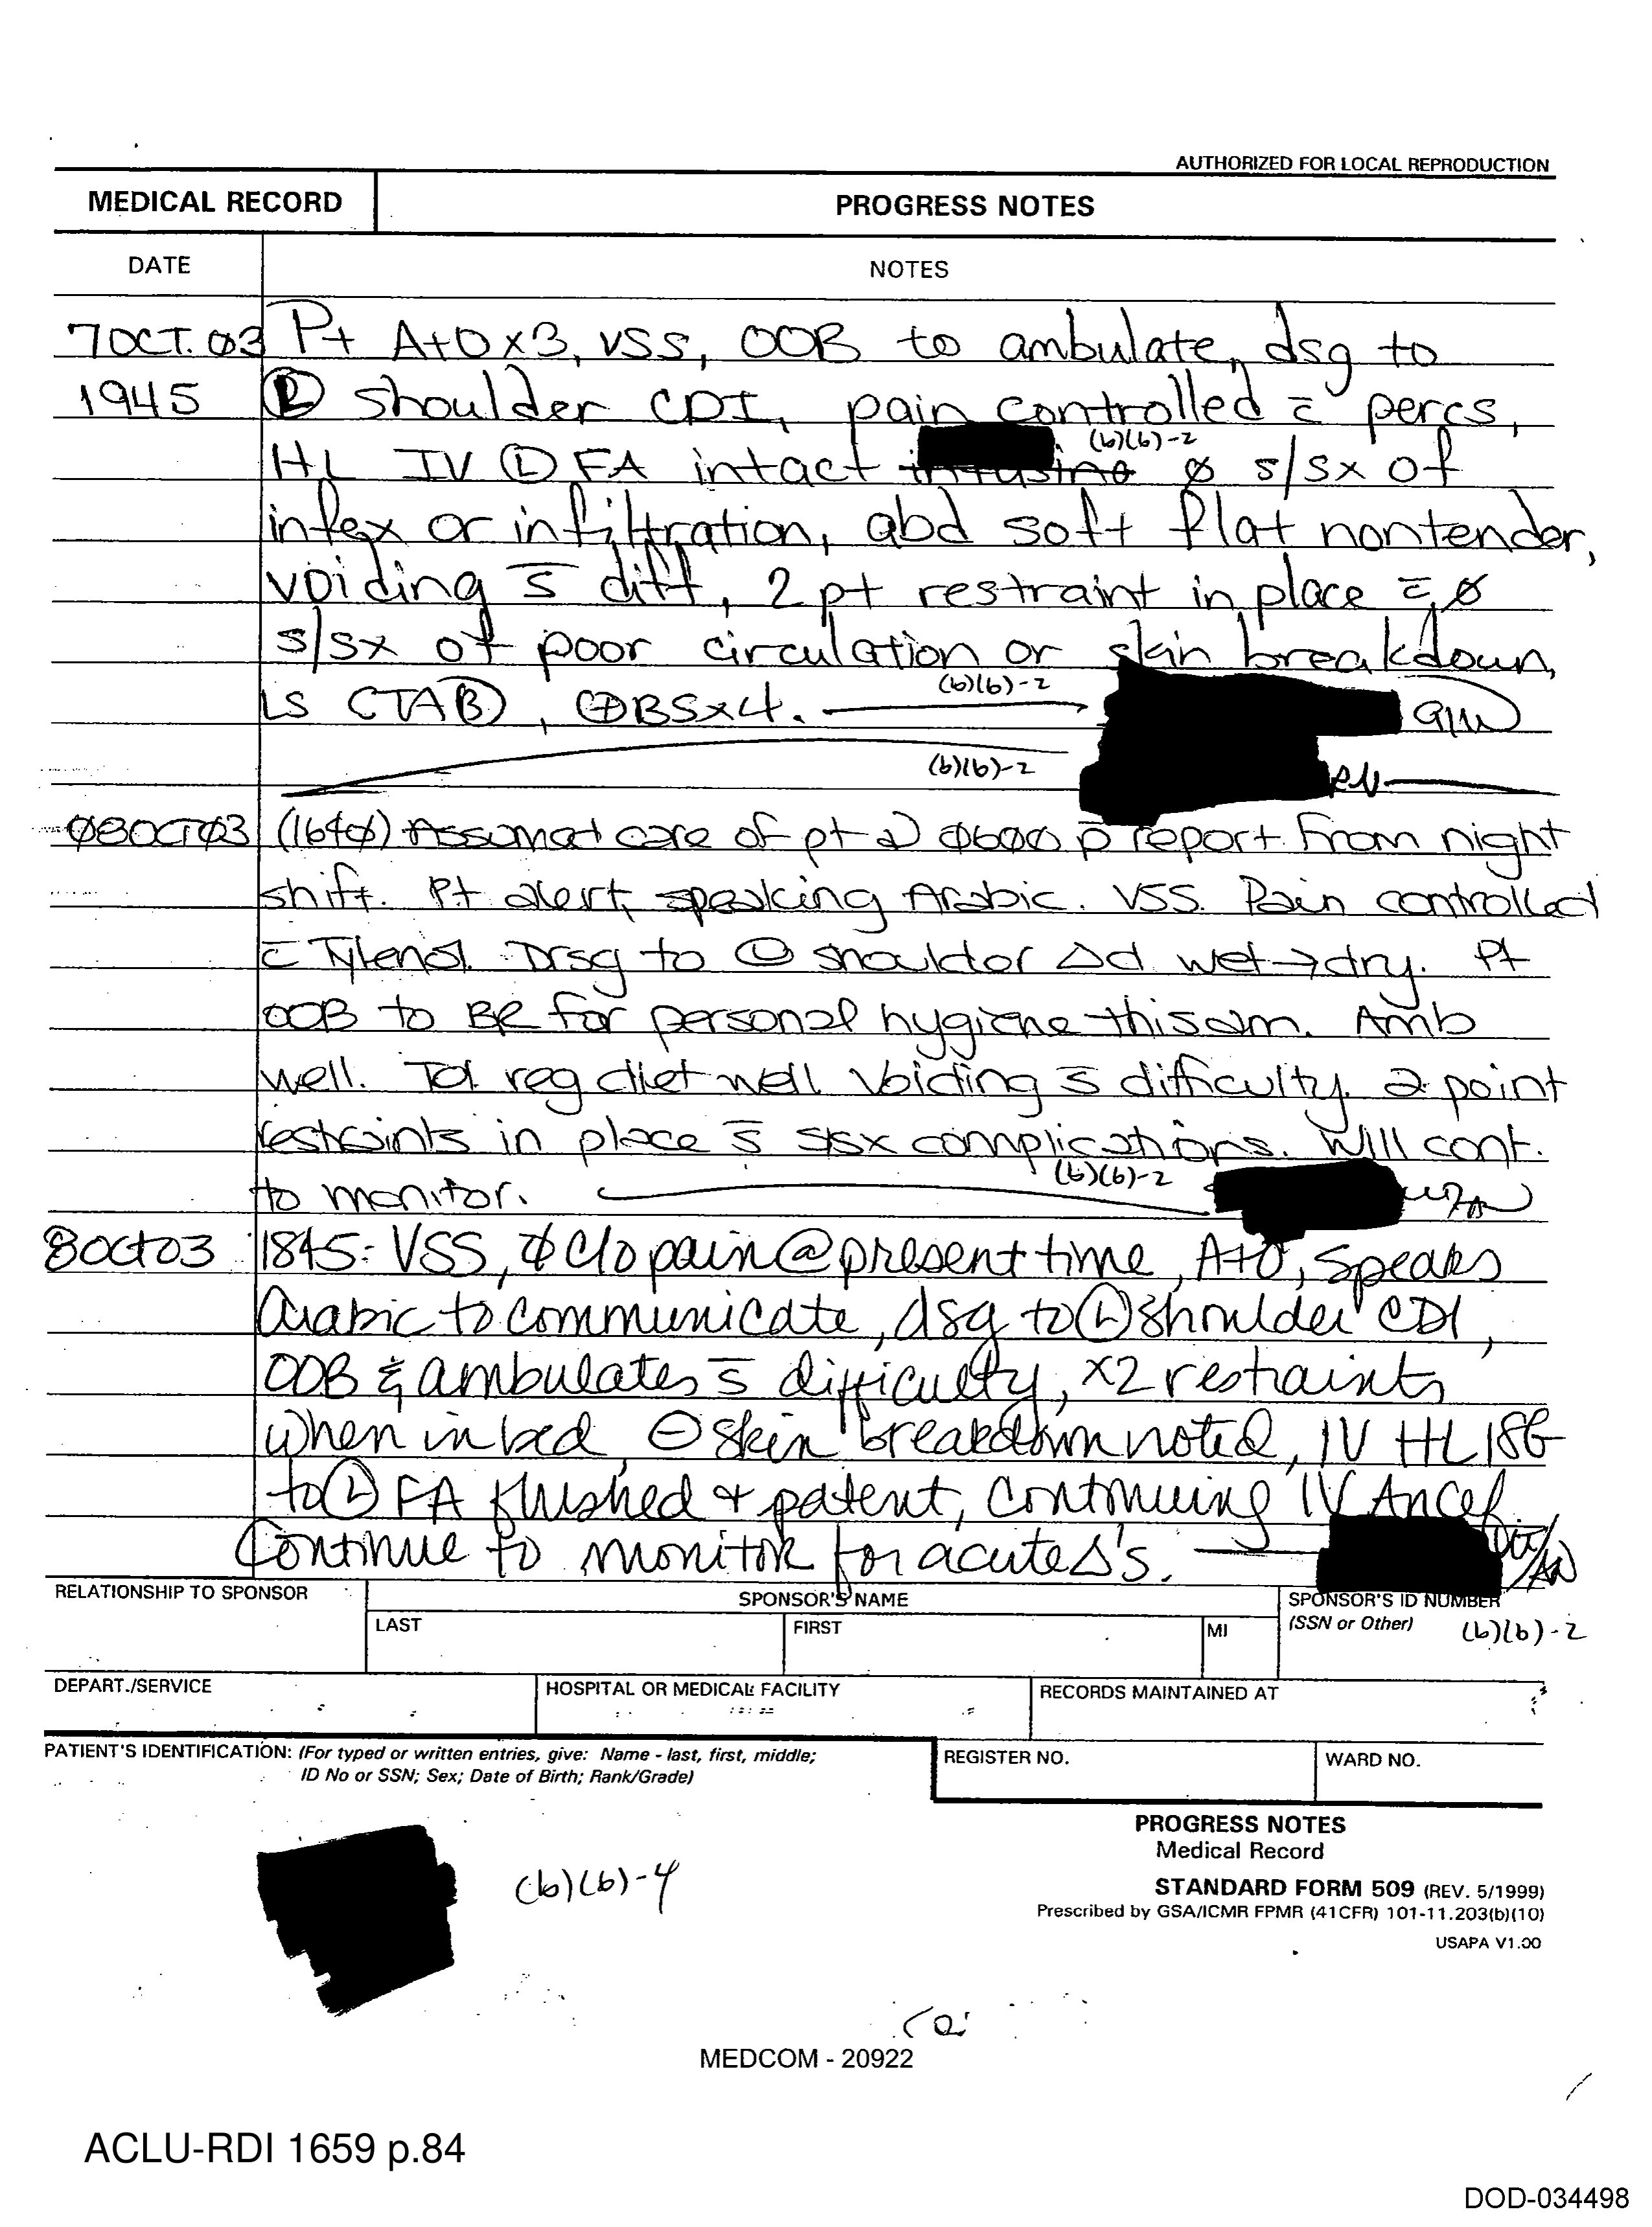 AUTHORIZED FOR LOCAL REPRODUCTION
MEDICAL RECORD PROGRESS NOTES
DATE NOTES
7 OCT. 03 Pt A+O x3, VSS, OOB to ambulate, dsg to
1945 Ⓛ shoulder CDI, pain controlled c̄ percs,
(b)(6)-2
HL IV Ⓛ FA intact infusing ∅ s/sx of
infex or infiltration, abd soft flat nontender,
voiding s̄ diff, 2 pt restraint in place c̄ ∅
s/sx of poor circulation or skin breakdown,
LS CTAⒷ, ⊕BSx4. (b)(6)-2
(b)(6)-2 RN
08OCT03 (1640) Assumed care of pt @ 0600 p̄ report from night
shift. Pt alert, speaking Arabic. VSS. Pain controlled
c̄ Tylenol. Drsg to Ⓛ shoulder Δd wet→dry. Pt
OOB to BR for personal hygiene this am. Amb
well. Tol reg diet well Voiding s̄ difficulty. 2 point
restraints in place s̄ s/sx complications. Will cont.
to monitor. (b)(6)-2
8Oct03 1845: VSS, ∅ c/o pain @ present time, A+O, speaks
Arabic to communicate, dsg to Ⓛ shoulder CDI,
OOB & ambulates s̄ difficulty, x2 restraints
when in bed ⊖ skin breakdown noted, IV HL 18G
to Ⓛ FA flushed + patent, continuing IV Ancef
Continue to monitor for acute Δ's.
RELATIONSHIP TO SPONSOR SPONSOR'S NAME SPONSOR'S ID NUMBER
LAST FIRST MI (SSN or Other) (b)(6)-2
DEPART./SERVICE HOSPITAL OR MEDICAL FACILITY RECORDS MAINTAINED AT
PATIENT'S IDENTIFICATION: (For typed or written entries, give: Name - last, first, middle; REGISTER NO. WARD NO.
ID No or SSN; Sex; Date of Birth; Rank/Grade)
PROGRESS NOTES
Medical Record
(b)(6)-4
STANDARD FORM 509 (REV. 5/1999)
Prescribed by GSA/ICMR FPMR (41CFR) 101-11.203(b)(10)
USAPA V1.00
MEDCOM - 20922
ACLU-RDI 1659 p.84
DOD-034498